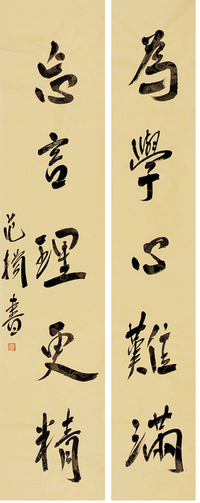 為學心難滿
忘言理更精
范揚書